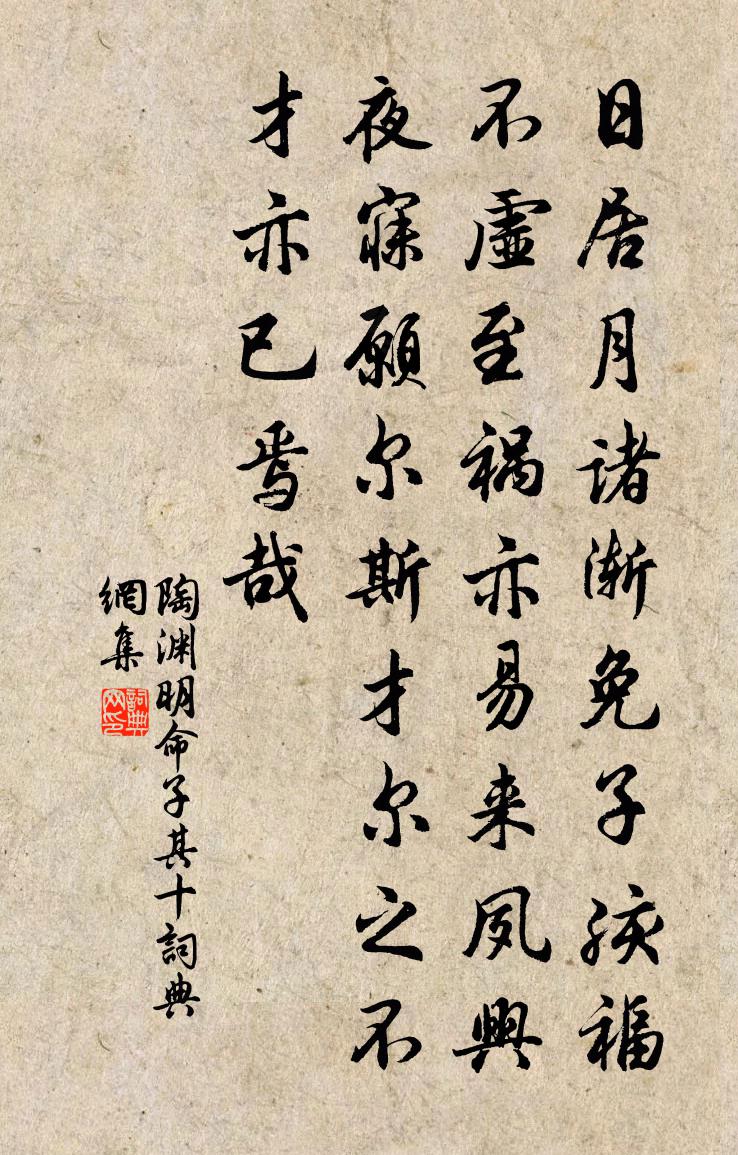 日居月诸渐免子孩福
不虚至祸亦易来夙興
夜寐願尔斯才尔之不
才亦已焉哉
陶渊明命子其十詞典
網集
詞典
网印